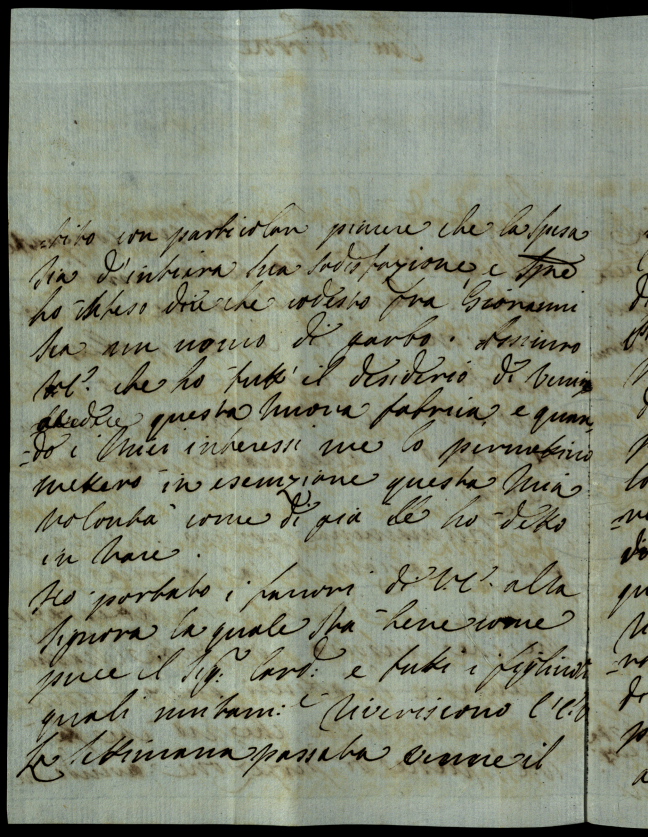 -tito con particolar piacere che la spesa
sia d'intiera sua sodisfazione, e
ho inteso dire che codesto Fra Giovanni
sia un uomo di garbo. Assicuro
V.C. che ho tutt' il desiderio di venir
a vedere questa nuova fabrica, e quan
-do i miei interessi me lo permetino
metterò in esecuzione questa mia
volontà come di già ho detto
in
Ho portato i favori di V.C. alla
Signora la quale sta bene come
pure il Sig. Card. e tutti i figliuoli
quali riveriscono
La settimana passata venne il